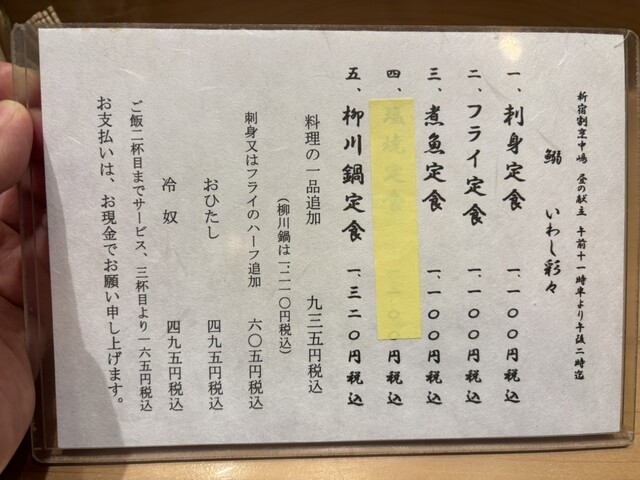 新宿割烹中嶋 昼の献立 午前十一時半より午後二時迄
鰯 いわし彩々
一、刺身定食 一、一〇〇円税込
二、フライ定食 一、一〇〇円税込
三、煮魚定食 一、一〇〇円税込
四、塩焼定食 一、一〇〇円税込
五、柳川鍋定食 一、三二〇円税込
料理の一品追加 九三五円税込
(柳川鍋は一、二一〇円税込)
刺身又はフライのハーフ追加 六〇五円税込
おひたし 四九五円税込
冷奴 四九五円税込
ご飯二杯目までサービス、三杯目より一六五円税込
お支払いは、お現金でお願い申し上げます。